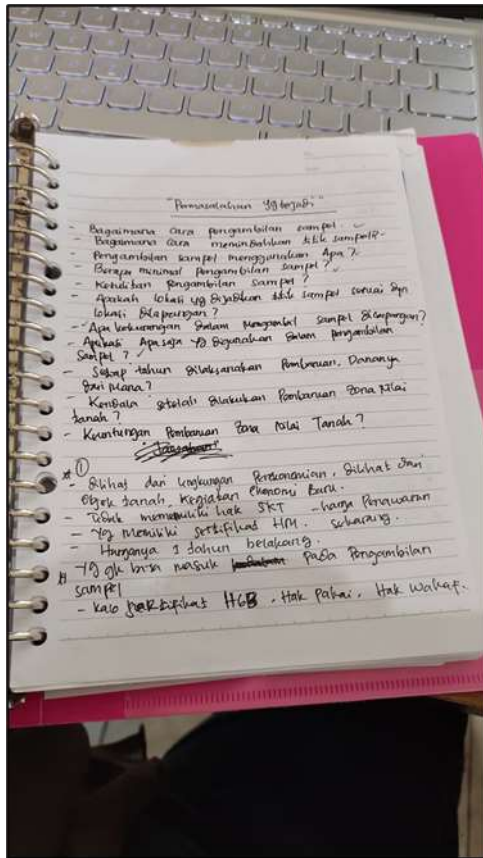 "Permasalahan yg terjadi"
- Bagaimana cara pengambilan sampel.
- Bagaimana cara memindahkan titik sampel?
- Pengambilan sampel menggunakan Apa?
- Berapa minimal pengambilan sampel?
- Kesulitan pengambilan sampel?
- Apakah lokasi yg dijadikan titik sampel sesuai dgn
lokasi dilapangan?
- Apa kekurangan dalam mengambil sampel dilapangan?
- Aplikasi Apa saja yg digunakan dalam pengambilan
sampel?
- Setiap tahun dilaksanakan Pembaruan, Dananya
dari mana?
- Kendala setelah dilakukan Pembaruan Zona Nilai
tanah?
- Keuntungan Pembaruan Zona Nilai Tanah?
①
- dilihat dari lingkungan Perekonomian, dilihat dari
objek tanah, kegiatan ekonomi Baru.
- Tidak mememiliki hak SKT - harga Penawaran
- Yg memiliki sertifikat HM. sekarang.
- Harganya 1 tahun belakang.
Yg gk bisa masuk pada Pengambilan
sampel
- kalo sertifikat HGB, Hak Pakai, Hak Wakaf.